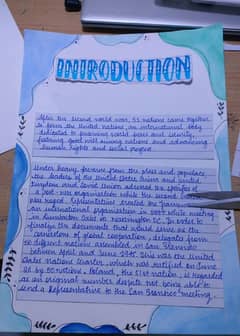 INTRODUCTION
After the second world war, 51 nations came together
to form the United Nations, an international body
dedicated to promoting world peace and security,
fostering good will among nations and advancing
human rights and social progress.
Under heavy pressure from the press and populace
the leaders of the United States Union and United
Kingdom and Soviet Union
a post-war organisation while the
Representatives created the
an international organisation in 1944 while meeting
in Dumbarton Oaks in Washington DC. In order to
finalize the documents that would serve as the
cornerstone of global cooperation, delegates from
50 different nations assembled in San Francisco
between April and June 1945. This was the United
States Nations Charter, which was ratified on June
26 by 50 nations, Poland, the 51st nation, is regarded
as an original member despite not being able to
send a Representative to the San Francisco meeting.